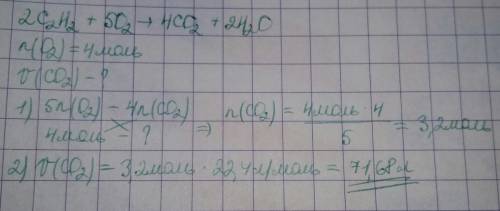 2C₂H₂ + 5O₂ → 4CO₂ + 2H₂O
n(O₂) = 4моль
V(CO₂) - ?
1) 5n(O₂) - 4n(CO₂) ⇒ n(CO₂) = 4моль · 4 / 5 = 3,2моль
4моль - ?
2) V(CO₂) = 3,2моль · 22,4л/моль = 71,68л